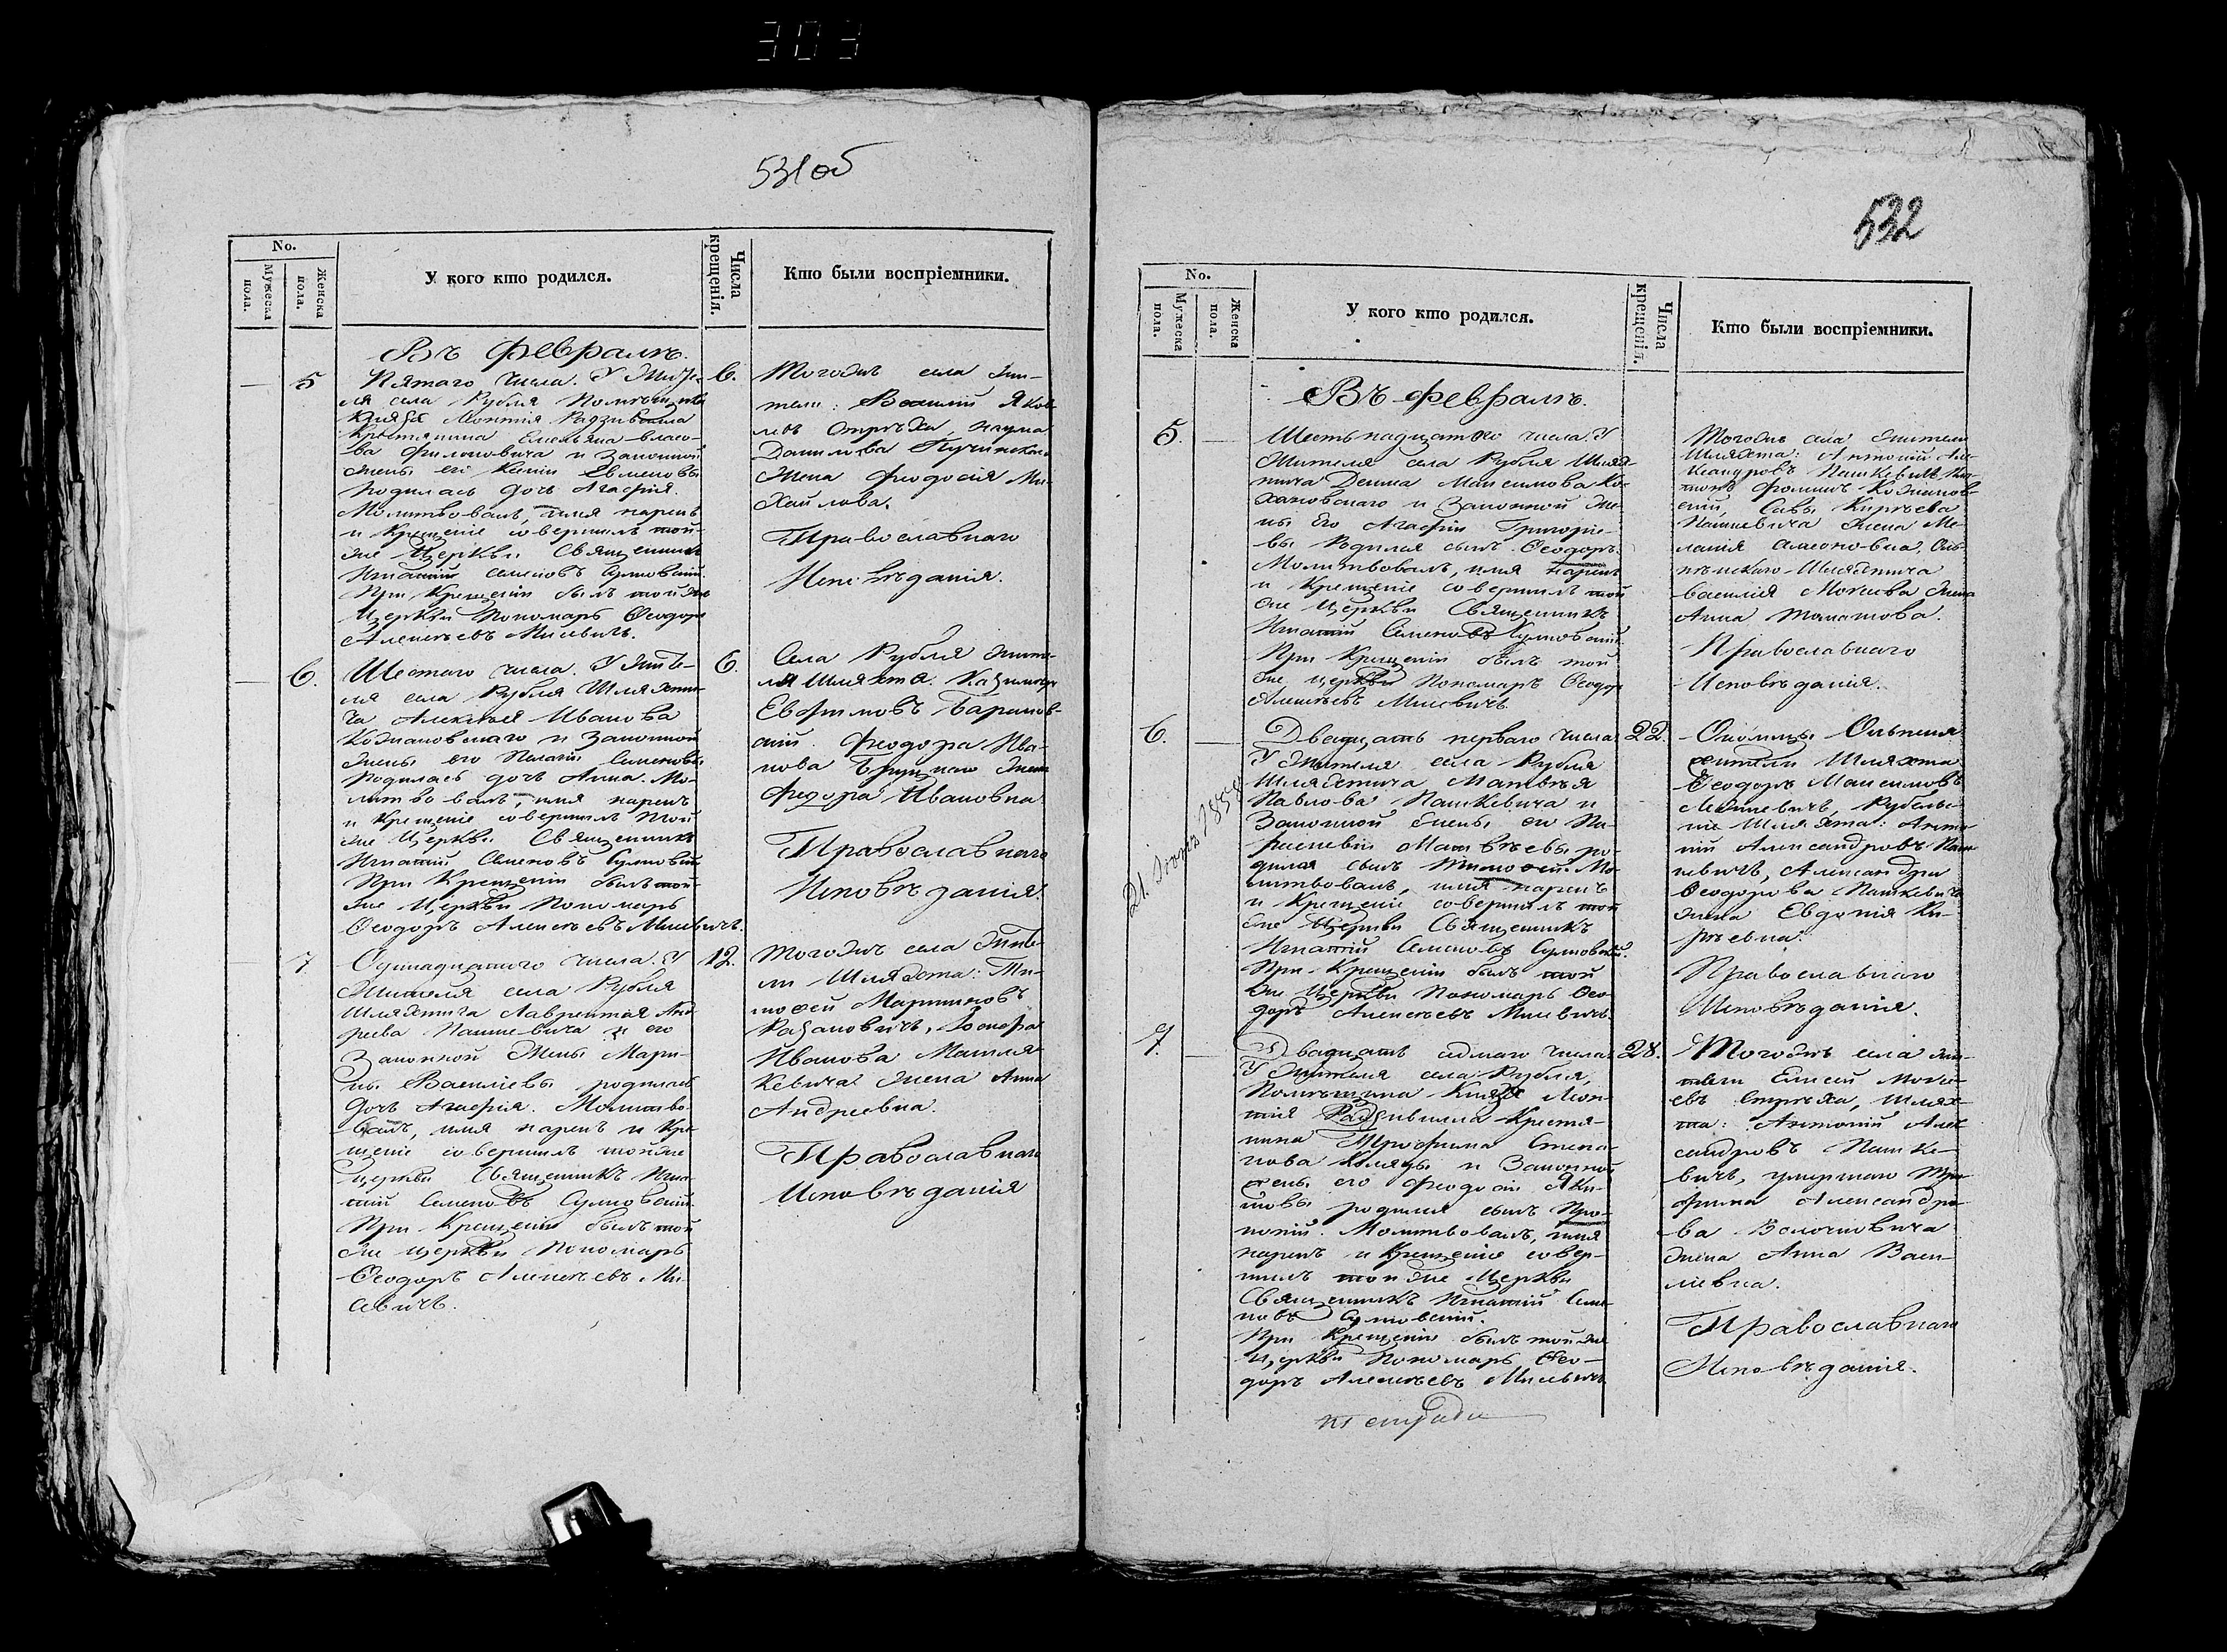 303
531об
No.
Мужеска пола.
Женска пола.
У кого кто родился.
Числа крещенія.
Кто были воспріемники.
Въ Февралѣ.
— 5
Пятаго числа. У жите-
ля села Рубля Помѣщика
Князя Леонтія Радзивилла
Крестьянина Емельяна Власо-
ва Филоновича и Законной
жены его Ксеніи Евменовы
родилась дочь Агафія.
Молитвовалъ, имя нарекъ
и Крещеніе совершилъ той-
же Церкви Священникъ
Игнатій Семеновъ
При Крещеніи былъ той же
Церкви Пономарь Ѳеодоръ
Алексѣевъ Мисевичъ.
6.
Тогожъ села жи-
тели: Василій Яков-
левъ Стрѣха, Наума
Данилова
Жена Феодосія Ми-
хайлова.
Православнаго
Исповѣданія.
— 6.
Шестаго числа. У жите-
ля села Рубля Шляхти-
ча Алексѣя Иванова
Кожановскаго и Законной
жены его Пелагіи Семеновы
родилась дочь Анна. Мо-
литвовалъ, имя нарекъ
и Крещеніе совершилъ той
же Церкви Священникъ
Игнатій Семеновъ
При Крещеніи былъ той-
же Церкви Пономарь
Ѳеодоръ Алексѣевъ Мисевичъ.
6.
Села Рубля жите-
ля Шляхта. Казимиръ
Евфимовъ Баранов-
скій. Феодора Ива-
нова жена
Федора Ивановна
Православнаго
Исповѣданія.
— 7
Одинадцатаго числа. У
Жителя села Рубля
Шляхтича Лаврентія Анд-
реева Пашкевича и его
Законной Жены Мари-
ны Василіевы родилась
дочь Агафія. Молитво-
валъ, имя нарекъ и Кре-
щеніе совершилъ тойже
Церкви Священникъ Игна-
тій Семеновъ
При Крещеніи былъ той
же Церкви Пономарь
Ѳеодоръ Алексѣевъ Ми-
севичъ.
12.
Тогожъ села Жите-
ли Шляхта: Ти-
моѳей Мартиновъ
Разановичъ, Іосифа
Иванова Машля-
кевича жена Анна
Андреевна.
Православнаго
Исповѣданія
532
No.
Мужеска пола.
Женска пола.
У кого кто родился.
Числа крещенія.
Кто были воспріемники.
Въ Февралѣ.
5. —
Шестьнадцатого числа. У
Жителя села Рубля Шлях-
тича Демида Максимова Ко-
жановскаго и Законной Же-
ны Его Агафіи Григоріе-
вы Родился сынъ Ѳеодоръ.
Молитвовалъ, имя нарекъ
и Крещеніе совершилъ той
же Церкви Священникъ
Игнатій Семеновъ
При Крещеніи былъ той
же церкви Пономарь Ѳеодоръ
Алексѣевъ Мисевичъ.
Тогожъ села жители
Шляхта: Антоній Але-
ксандровъ Пашкевичъ,
Фоминъ Кожанов-
скій, Савы Кирѣева
Пашкевича жена Ме-
ланія Семеновна, Оль-
пѣнскаго Шляхтича
Василія Мосіева жена
Анна
Православнаго
Исповѣданія.
6. —
21. 1858
Двадцать перваго числа
У Жителя села Рубля
Шляхтича Матвѣя
Павлова Пашкевича и
Законной Жены его Па-
раскевіи Матвѣевы ро-
дился сынъ Тимоѳей. Мо-
литвовалъ, имя нарекъ
и Крещеніе совершилъ той
же Церкви Священникъ
Игнатій Семеновъ
При Крещеніи былъ той
же Церкви Пономарь Ѳео-
доръ Алексѣевъ Мисевичъ.
22.
Околицы Ольпеня
жители Шляхта
Ѳеодоръ Максимовъ
Рубель-
ніе Шляхта: Анто-
ній Александровъ Паш-
кевичъ, Александра
Ѳеодорова Пашкевича
жена Евдокія Ки-
рѣевна.
Православнаго
Исповѣданія.
7. —
Двадцать седмаго числа
У Жителя села Рубля,
Помѣщика Князя Леон-
тія Радзивилла Крестья-
нина Трофима Степа-
нова и Законной
жены его Феодосіи Яки-
мовы родился сынъ Про-
копій. Молитвовалъ, имя
нарекъ и Крещеніе совер-
шилъ той же Церкви
Священникъ Игнатій Семе-
новъ
При Крещеніи былъ той же
Церкви Пономарь Ѳео-
доръ Алексѣевъ Мисевичъ
28.
Тогожъ села жи-
тели Елисей Мосіе-
евъ Стрѣха, Шлях-
та: Антоній Алек-
сандровъ Пашке-
вичъ, умершаго Тро-
фима Александро-
ва
жена Анна Васи-
ліевна.
Православнаго
Исповѣданія.